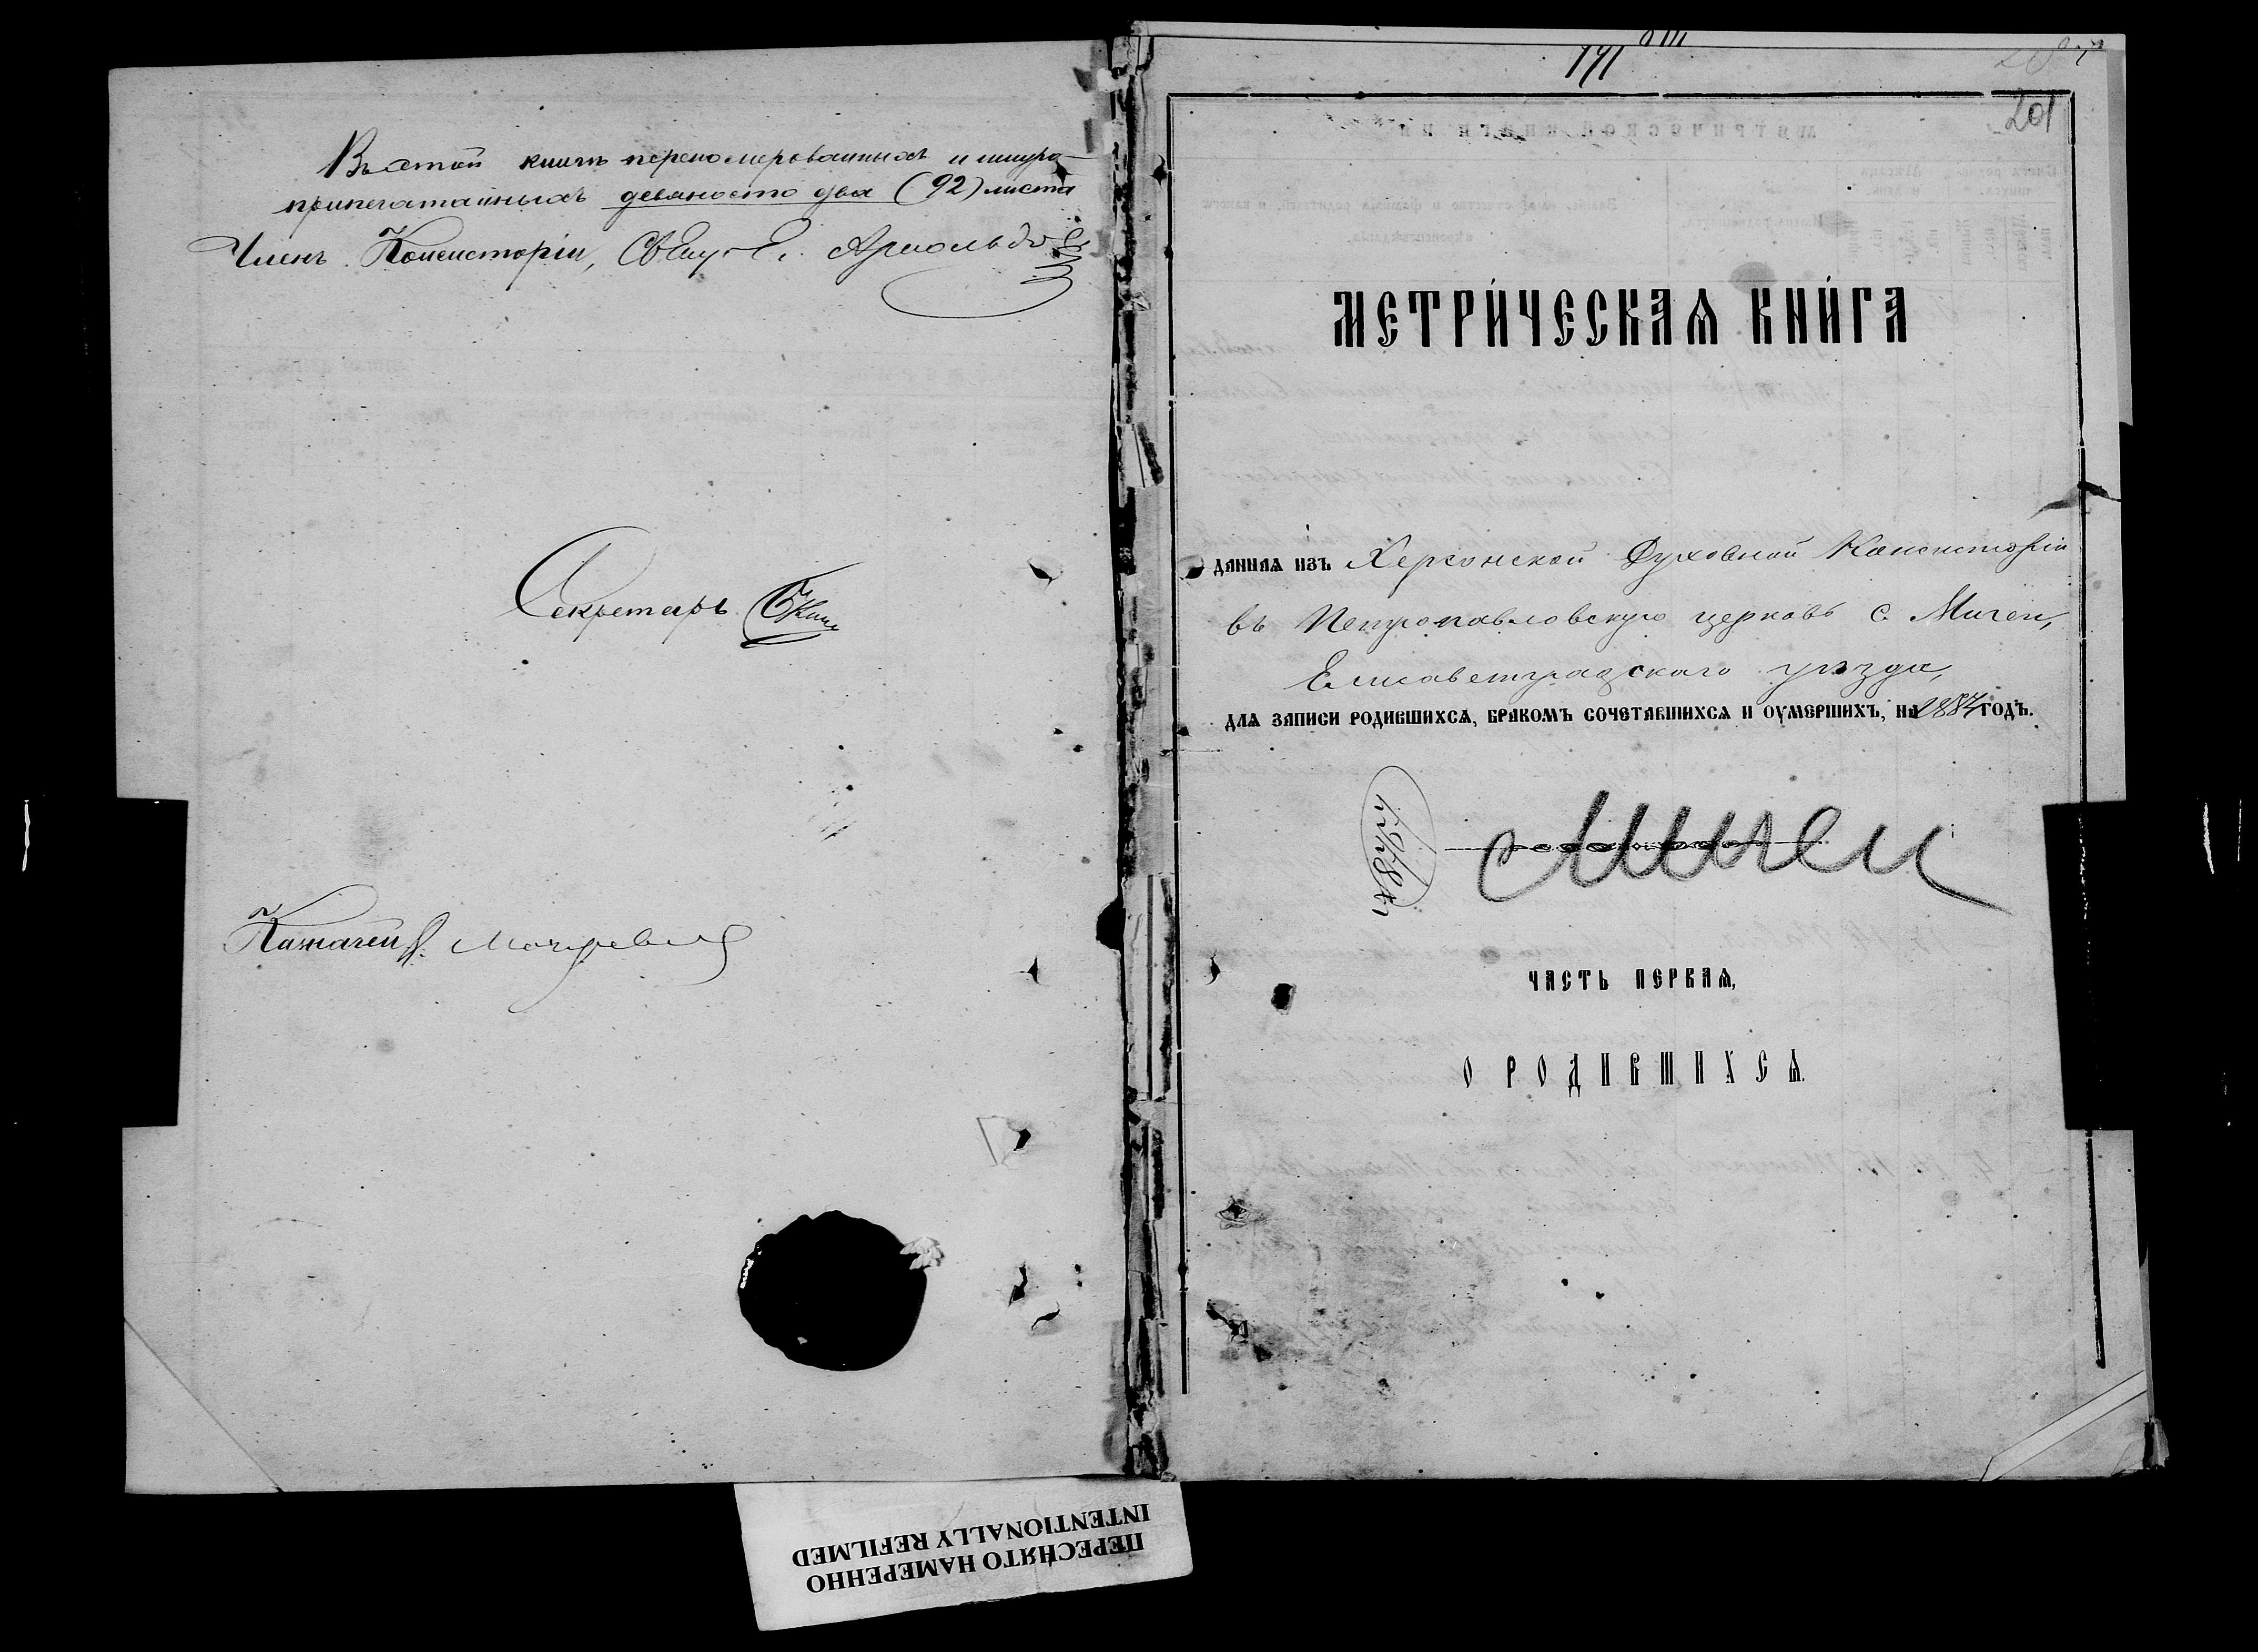 Въ этой книгѣ перенумерованныхъ и шнуро-
припечатанныхъ девяносто два (92) листа
Членъ Консисторіи, Арнольдовъ
Секретарь
Казначей
191
201
МЕТРИ́ЧЕСКАѦ КНИ́ГА
даннаѧ изъ Херсонской Духовной Консисторіи
въ Петропавловскую церковь с. Мигеи,
Елисаветградскаго уѣзда,
длѧ записи родившихсѧ, бракомъ сочетавшихсѧ и оумершихъ, на 1884 годъ.
с Мигеи
ЧАСТЬ ПЕРВАѦ,
О РОДИВШИХСѦ.
ПЕРЕСНЯТО НАМЕРЕННО
INTENTIONALLY REFILMED